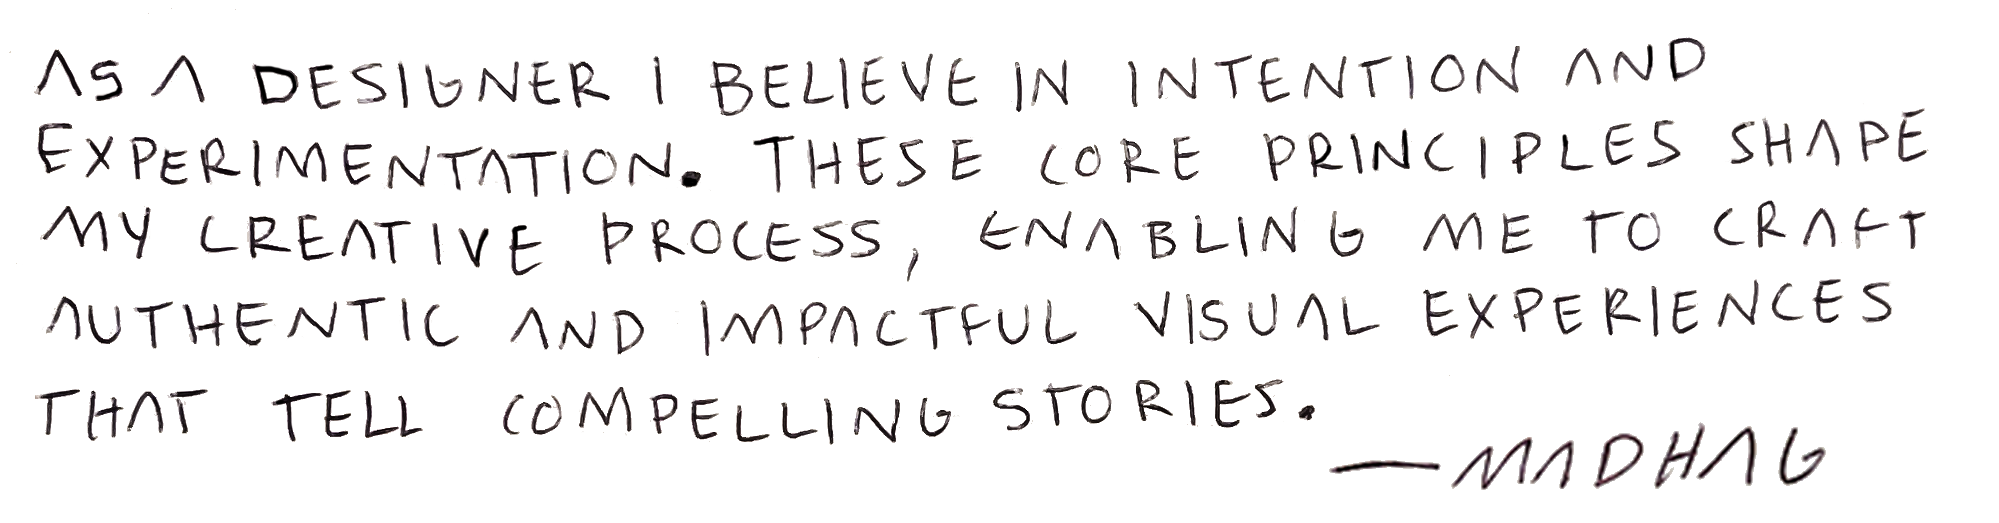 AS A DESIGNER I BELIEVE IN INTENTION AND
EXPERIMENTATION. THESE CORE PRINCIPLES SHAPE
MY CREATIVE PROCESS, ENABLING ME TO CRAFT
AUTHENTIC AND IMPACTFUL VISUAL EXPERIENCES
THAT TELL COMPELLING STORIES.
—MADHAG